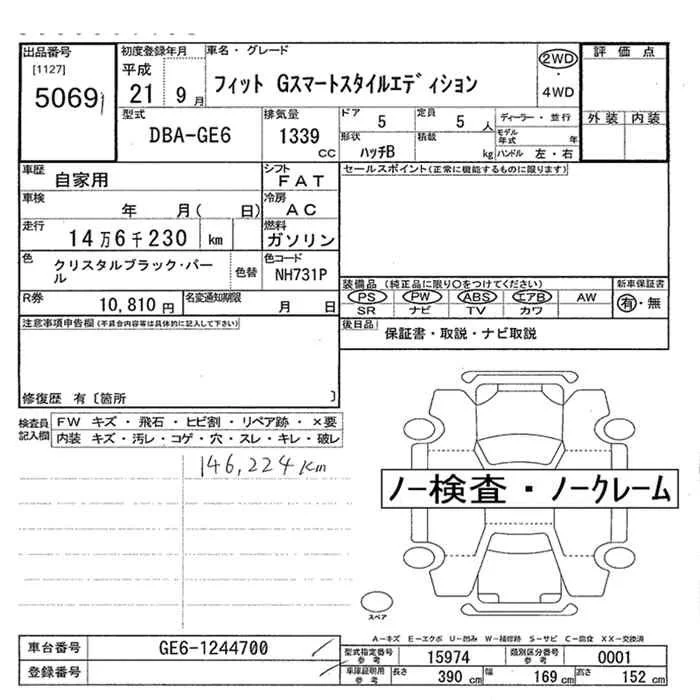 出品番号
[1127]
5069
初度登録年月
平成
21 9 月
車名・グレード
フィット Gスマートスタイルエディション
2WD
・
4WD
評価点
外装 内装
型式
DBA-GE6
排気量
1339 CC
ドア 5
定員 5 人
ディーラー・並行
モデル年式 年
形状
ハッチB
積載 kg
ハンドル 左・右
車歴
自家用
シフト
FAT
セールスポイント(正常に機能するものに限ります)
車検
年 月( 日)
冷房
AC
走行
14万6千230 km
燃料
ガソリン
色
クリスタルブラック・パール
色替
色コード
NH731P
装備品 (純正品に限り○をつけてください)
PS PW ABS エアB AW
SR ナビ TV カワ
新車保証書
有・無
R券
10,810 円
名変通知期限
月 日
後日品
保証書・取説・ナビ取説
注意事項申告欄(不具合内容等は具体的に記入して下さい)
修復歴 有〔箇所 〕
検査員記入欄
FW キズ・飛石・ヒビ割・リペア跡・×要
内装 キズ・汚レ・コゲ・穴・スレ・キレ・破レ
146,224Km
ノー検査・ノークレーム
スペア
A-キズ E-エクボ U-凹み W-補修跡 S-サビ C-腐食 XX-交換済
車台番号
GE6-1244700
登録番号
型式指定番号
参考
15974
類別区分番号
参考
0001
車庫証明用
参考
長さ 390 cm
幅 169 cm
高さ 152 cm